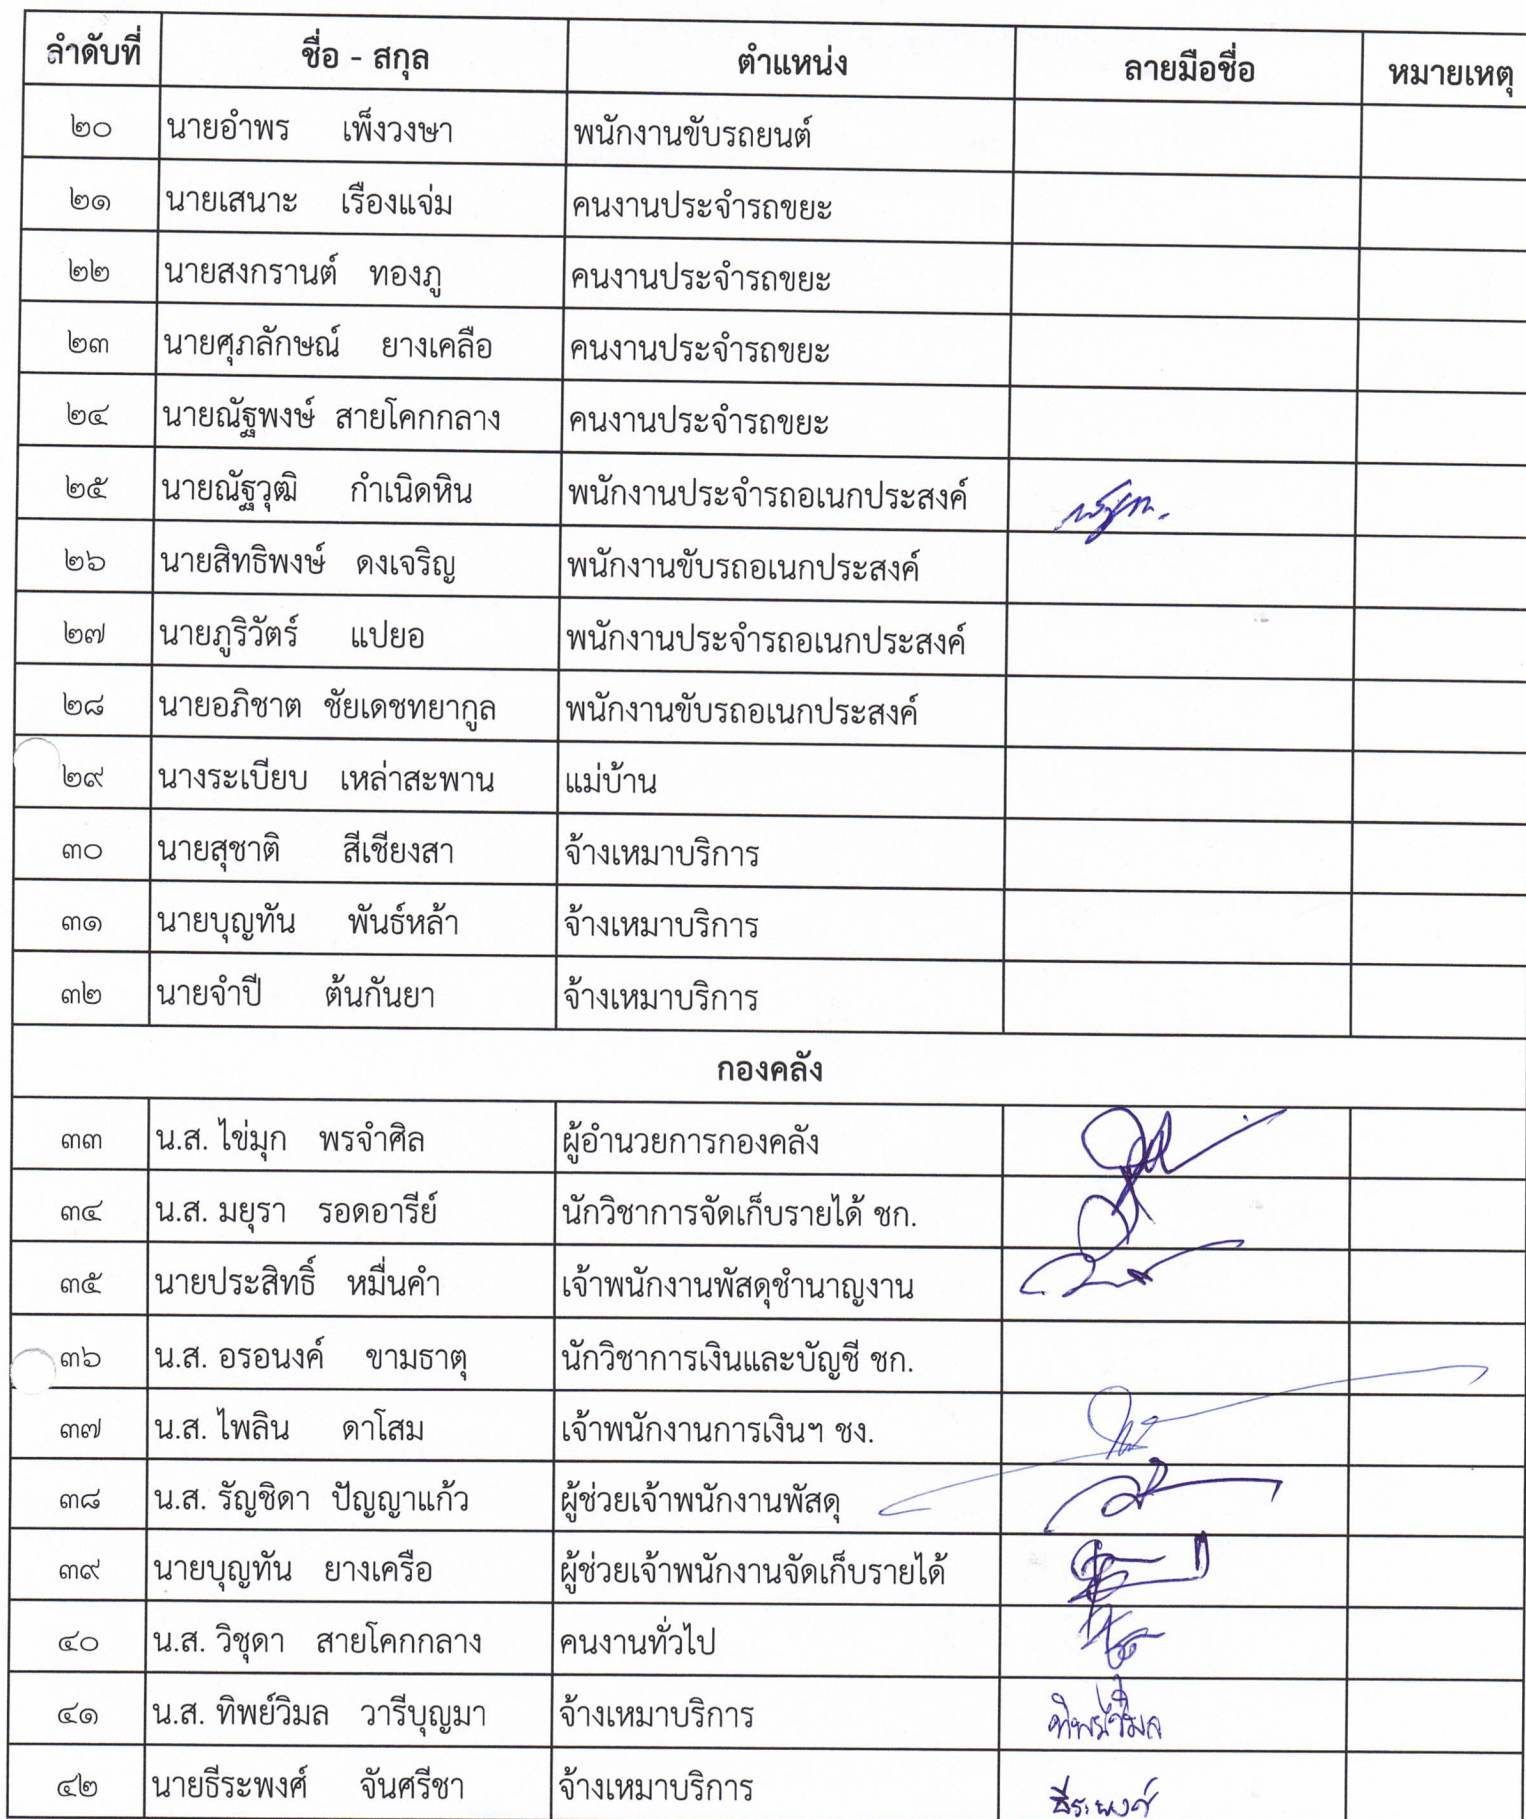 ลำดับที่ ชื่อ - สกุล ตำแหน่ง ลายมือชื่อ หมายเหตุ
๒๐ นายอำพร เพ็งวงษา พนักงานขับรถยนต์
๒๑ นายเสนาะ เรืองแจ่ม คนงานประจำรถขยะ
๒๒ นายสงกรานต์ ทองภู คนงานประจำรถขยะ
๒๓ นายศุภลักษณ์ ยางเคลือ คนงานประจำรถขยะ
๒๔ นายณัฐพงษ์ สายโคกกลาง คนงานประจำรถขยะ
๒๕ นายณัฐวุฒิ กำเนิดหิน พนักงานประจำรถอเนกประสงค์
๒๖ นายสิทธิพงษ์ ดงเจริญ พนักงานขับรถอเนกประสงค์
๒๗ นายภูริวัตร์ แปยอ พนักงานประจำรถอเนกประสงค์
๒๘ นายอภิชาต ชัยเดชทยากูล พนักงานขับรถอเนกประสงค์
๒๙ นางระเบียบ เหล่าสะพาน แม่บ้าน
๓๐ นายสุชาติ สีเชียงสา จ้างเหมาบริการ
๓๑ นายบุญทัน พันธ์หล้า จ้างเหมาบริการ
๓๒ นายจำปี ต้นกันยา จ้างเหมาบริการ
กองคลัง
๓๓ น.ส. ไข่มุก พรจำศิล ผู้อำนวยการกองคลัง
๓๔ น.ส. มยุรา รอดอารีย์ นักวิชาการจัดเก็บรายได้ ชก.
๓๕ นายประสิทธิ์ หมื่นคำ เจ้าพนักงานพัสดุชำนาญงาน
๓๖ น.ส. อรอนงค์ ขามธาตุ นักวิชาการเงินและบัญชี ชก.
๓๗ น.ส. ไพลิน ดาโสม เจ้าพนักงานการเงินฯ ชง.
๓๘ น.ส. รัญชิดา ปัญญาแก้ว ผู้ช่วยเจ้าพนักงานพัสดุ
๓๙ นายบุญทัน ยางเครือ ผู้ช่วยเจ้าพนักงานจัดเก็บรายได้
๔๐ น.ส. วิชุดา สายโคกกลาง คนงานทั่วไป
๔๑ น.ส. ทิพย์วิมล วารีบุญมา จ้างเหมาบริการ ทิพย์วิมล
๔๒ นายธีระพงศ์ จันศรีชา จ้างเหมาบริการ ธีระพงศ์